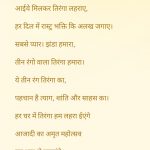 आईये मिलकर तिरंगा लहराए,
हर दिल में राष्ट्र भक्ति कि अलख जगाए।
सबसे प्यारा झंडा हमारा,
तीन रंगो वाला तिरंगा हमारा।
ये तीन रंग तिरंगा का,
पहचान है त्याग, शांति और साहस का।
हर घर में तिरंगा हम लहरा ईएंगे
आजादी का अमृत महोत्सव